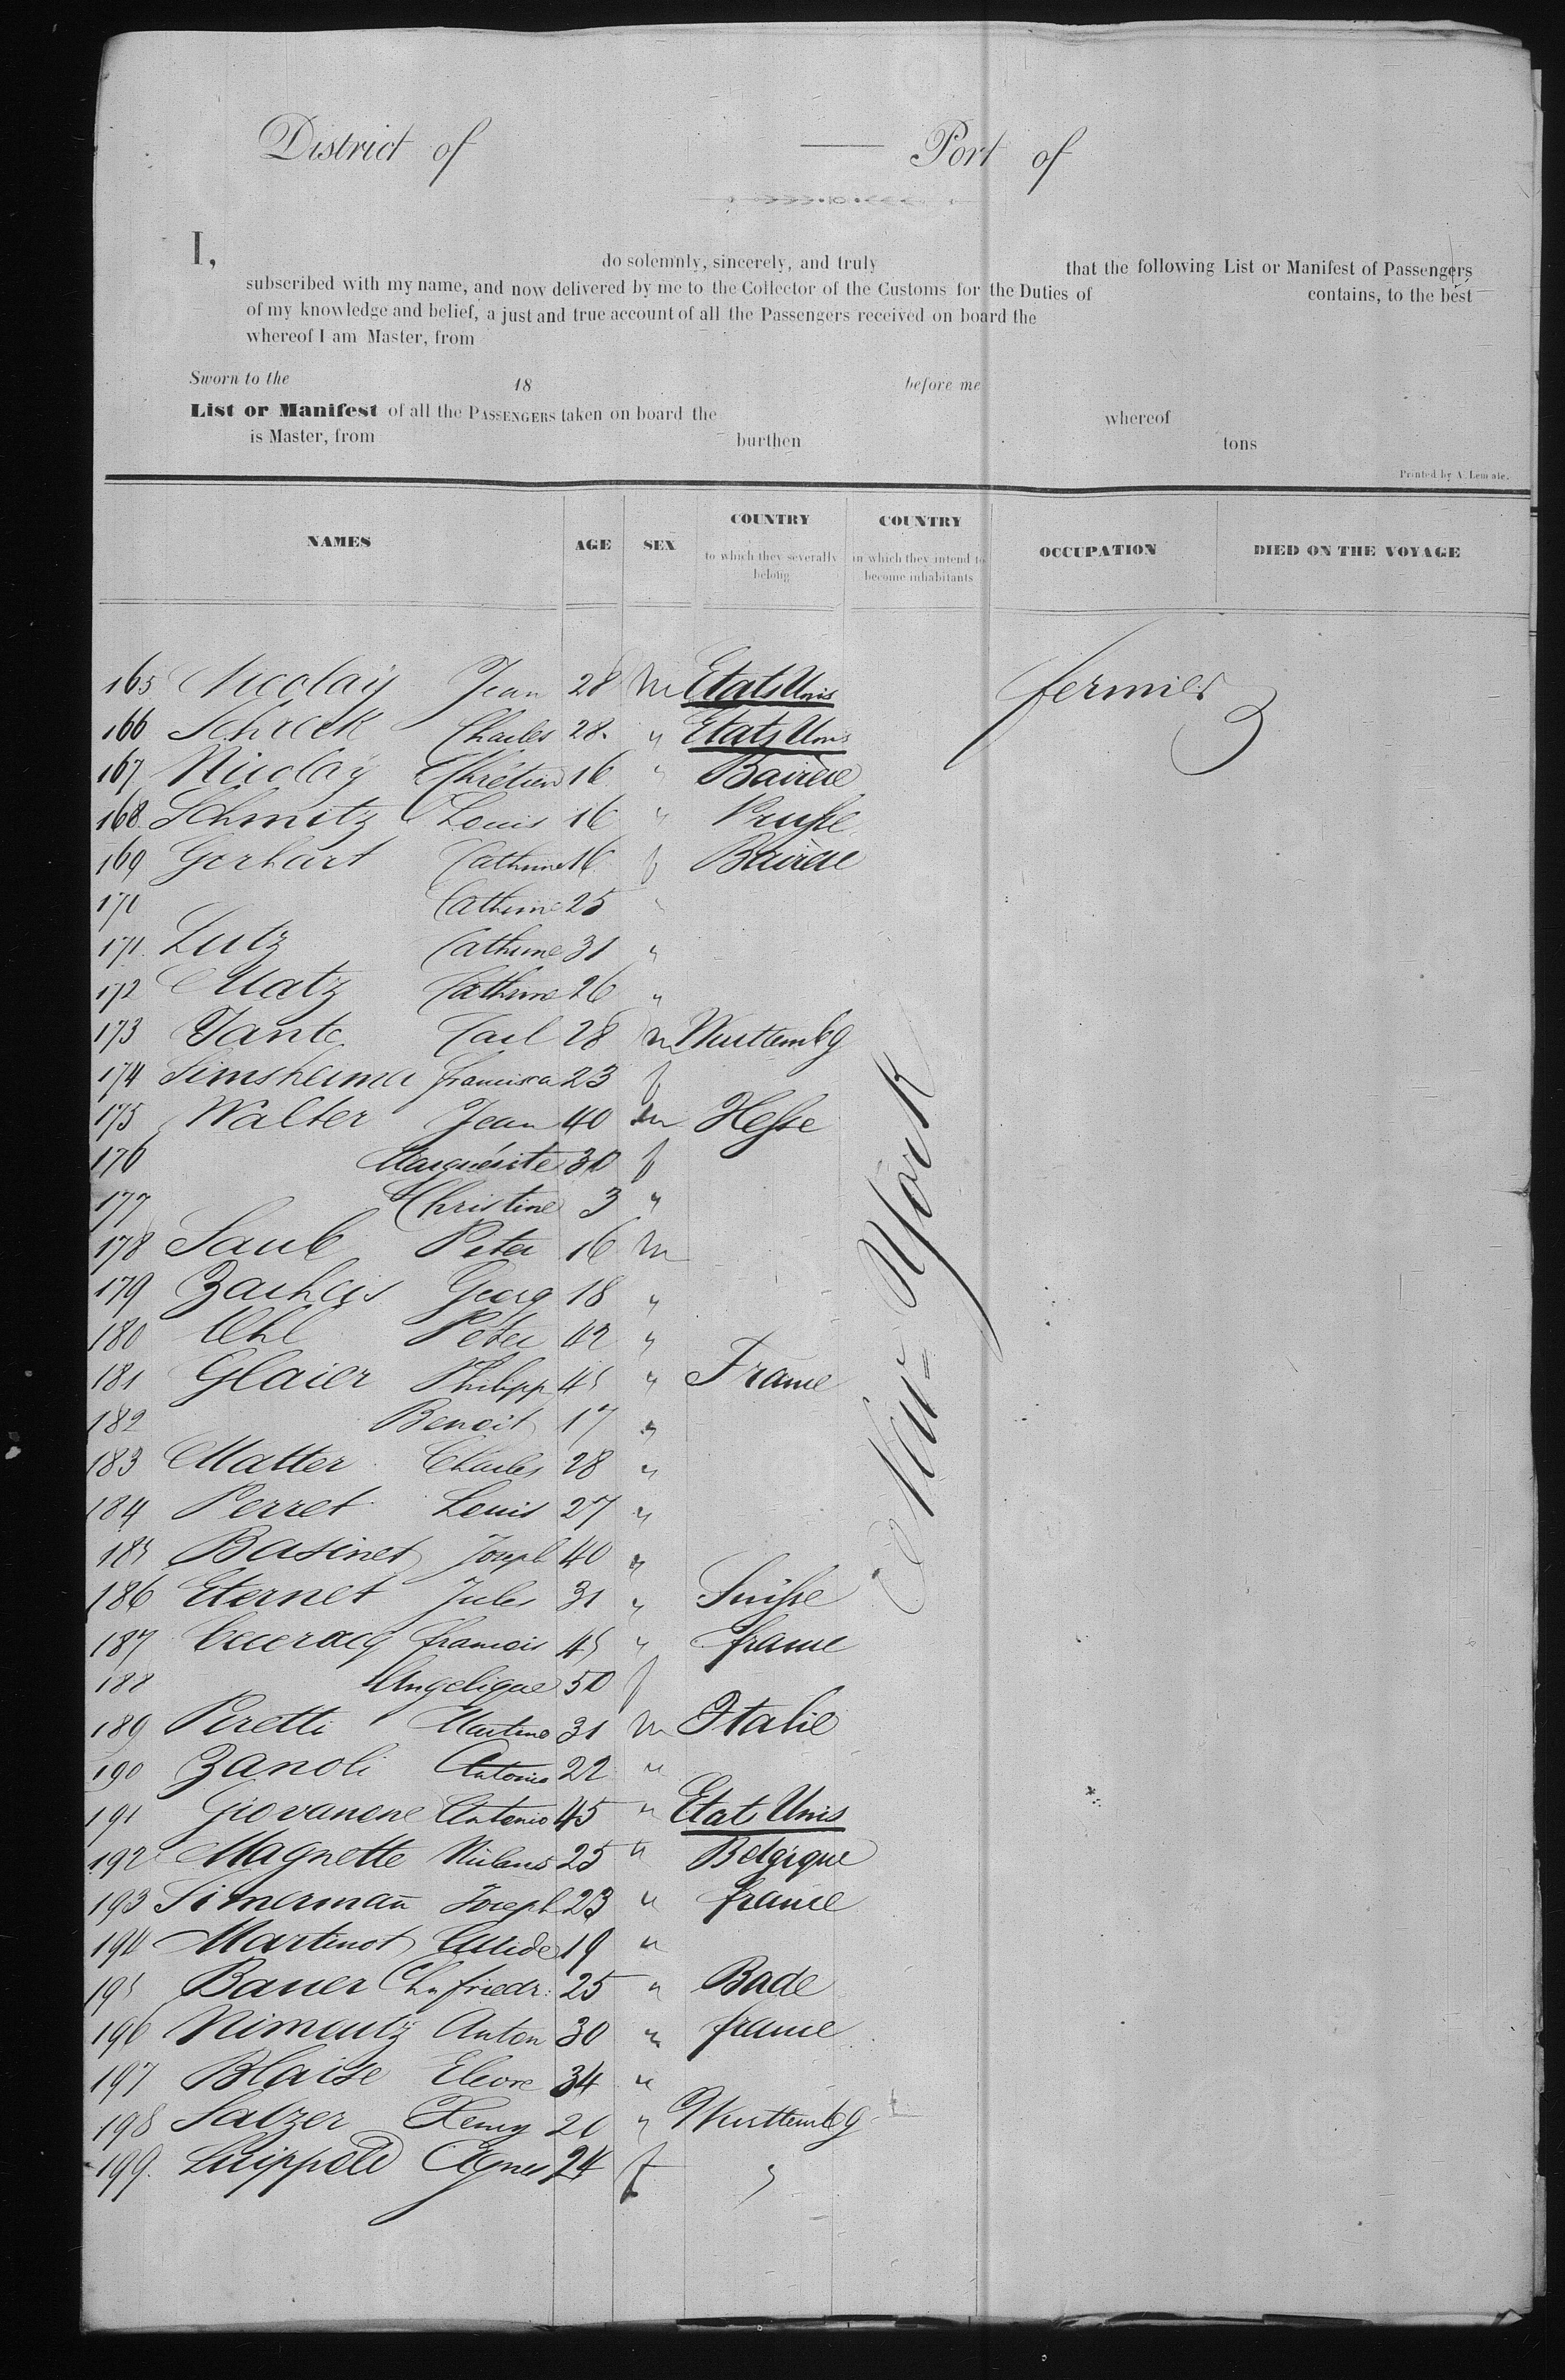 District of — Port of
I, do solemnly, sincerely, and truly that the following List or Manifest of Passengers
subscribed with my name, and now delivered by me to the Collector of the Customs for the Duties of contains, to the best
of my knowledge and belief, a just and true account of all the Passengers received on board the
whereof I am Master, from
Sworn to the 18 before me
List or Manifest of all the PASSENGERS taken on board the whereof
is Master, from burthen tons
Printed by A. Lemale.
NAMES AGE SEX COUNTRY to which they severally belong COUNTRY in which they intend to become inhabitants OCCUPATION DIED ON THE VOYAGE
165 Nicolaÿ Jean 28 m Etats Unis fermier
166 Schreck Charles 28. " Etats Unis
167 Nicolaÿ Chrétien 16 " Bavière
168 Schmitz Louis 16 " Prusse
169 Gerhart Catherine 16 f Bavière
170 Catherine 25 "
171. Lutz Catherine 31 "
172 Matz Catherine 26 "
173 Carl 28 m Wurttembg
174 Francisca 23 f
175 Walter Jean 40 m Hesse
176 Marguérite 30 f
177 Christine 3 "
178 Peter 16 m
179 Georg 18 "
180 Uhl Peter 42 "
181 Glaier Philipp 45 " France
182 Benoit 17 "
183 Matter Charles 28 "
184 Perret Louis 27 "
185 Basinet Joseph 40 "
186 Eternet Jules 31 " Suisse
187 francois 45 " france
188 Angelique 50 f
189 Peretti Martino 31 m Italie
190 Zanoli Antonio 22 "
191 Giovanone Antonio 45 " Etat Unis
192 Magnette 25 " Belgique
193 Simermañ Joseph 23 " france
194 Martinot 19 "
195 Bauer Chr friedr: 25 " Bade
196 Anton 30 " france
197 Blaise 34 "
198 Salzer 20 " Wurttembg
199. Luippold Agnes 24 f "
New-York